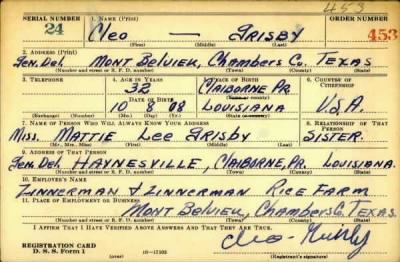 453
SERIAL NUMBER 1. NAME (Print) ORDER NUMBER
24 Cleo — Grisby 453
(First) (Middle) (Last)
2. ADDRESS (Print)
Gen. Del. MONT BELVIEU, Chambers Co. TEXAS
(Number and street or R. F. D. number) (Town) (County) (State)
3. TELEPHONE 4. AGE IN YEARS 5. PLACE OF BIRTH 6. COUNTRY OF CITIZENSHIP
32 CLAIBORNE PR.
DATE OF BIRTH (Town or county)
10 08 LOUISIANA U.S.A.
(Exchange) (Number) (Mo.) (Day) (Yr.) (State or country)
7. NAME OF PERSON WHO WILL ALWAYS KNOW YOUR ADDRESS 8. RELATIONSHIP OF THAT PERSON
Miss. MATTIE Lee Grisby SISTER.
(Mr., Mrs., Miss) (First) (Middle) (Last)
9. ADDRESS OF THAT PERSON
Gen. Del. HAYNESVILLE, CLAIBORNE, Pr. LOUISIANA.
(Number and street or R. F. D. number) (Town) (County) (State)
10. EMPLOYER'S NAME
ZINNERMAN & ZINNERMAN RICE FARM
11. PLACE OF EMPLOYMENT OR BUSINESS
MONT BELVIEU, Chambers Co. TEXAS.
(Number and street or R. F. D. number) (Town) (County) (State)
I AFFIRM THAT I HAVE VERIFIED ABOVE ANSWERS AND THAT THEY ARE TRUE.
REGISTRATION CARD
D. S. S. Form 1 16—17105 (Registrant's signature)